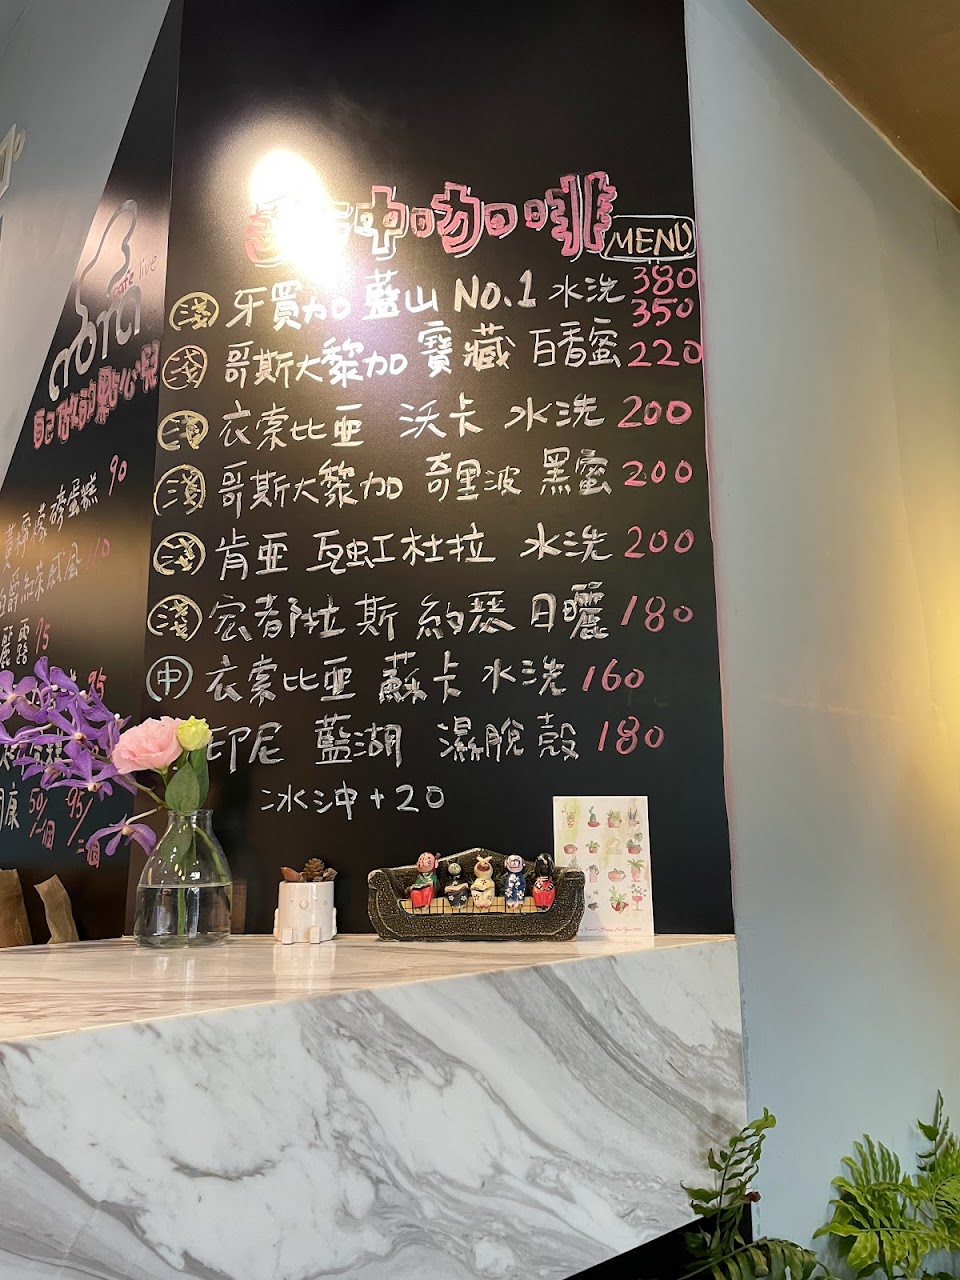 沖咖啡 MENU
淺 牙買加 藍山 No.1 水洗 380
350
淺 哥斯大黎加 寶藏 百香蜜 220
淺 衣索比亞 沃卡 水洗 200
淺 哥斯大黎加 奇里波 黑蜜 200
淺 肯亞 瓦虹杜拉 水洗 200
淺 宏都拉斯 約瑟 日曬 180
中 衣索比亞 蘇卡 水洗 160
印尼 藍湖 濕脫殼 180
冰沖+20
live
自己做的點心喔
檸檬磅蛋糕 90
伯爵紅茶戚風
露 75
95
康 50/一個 95/二個